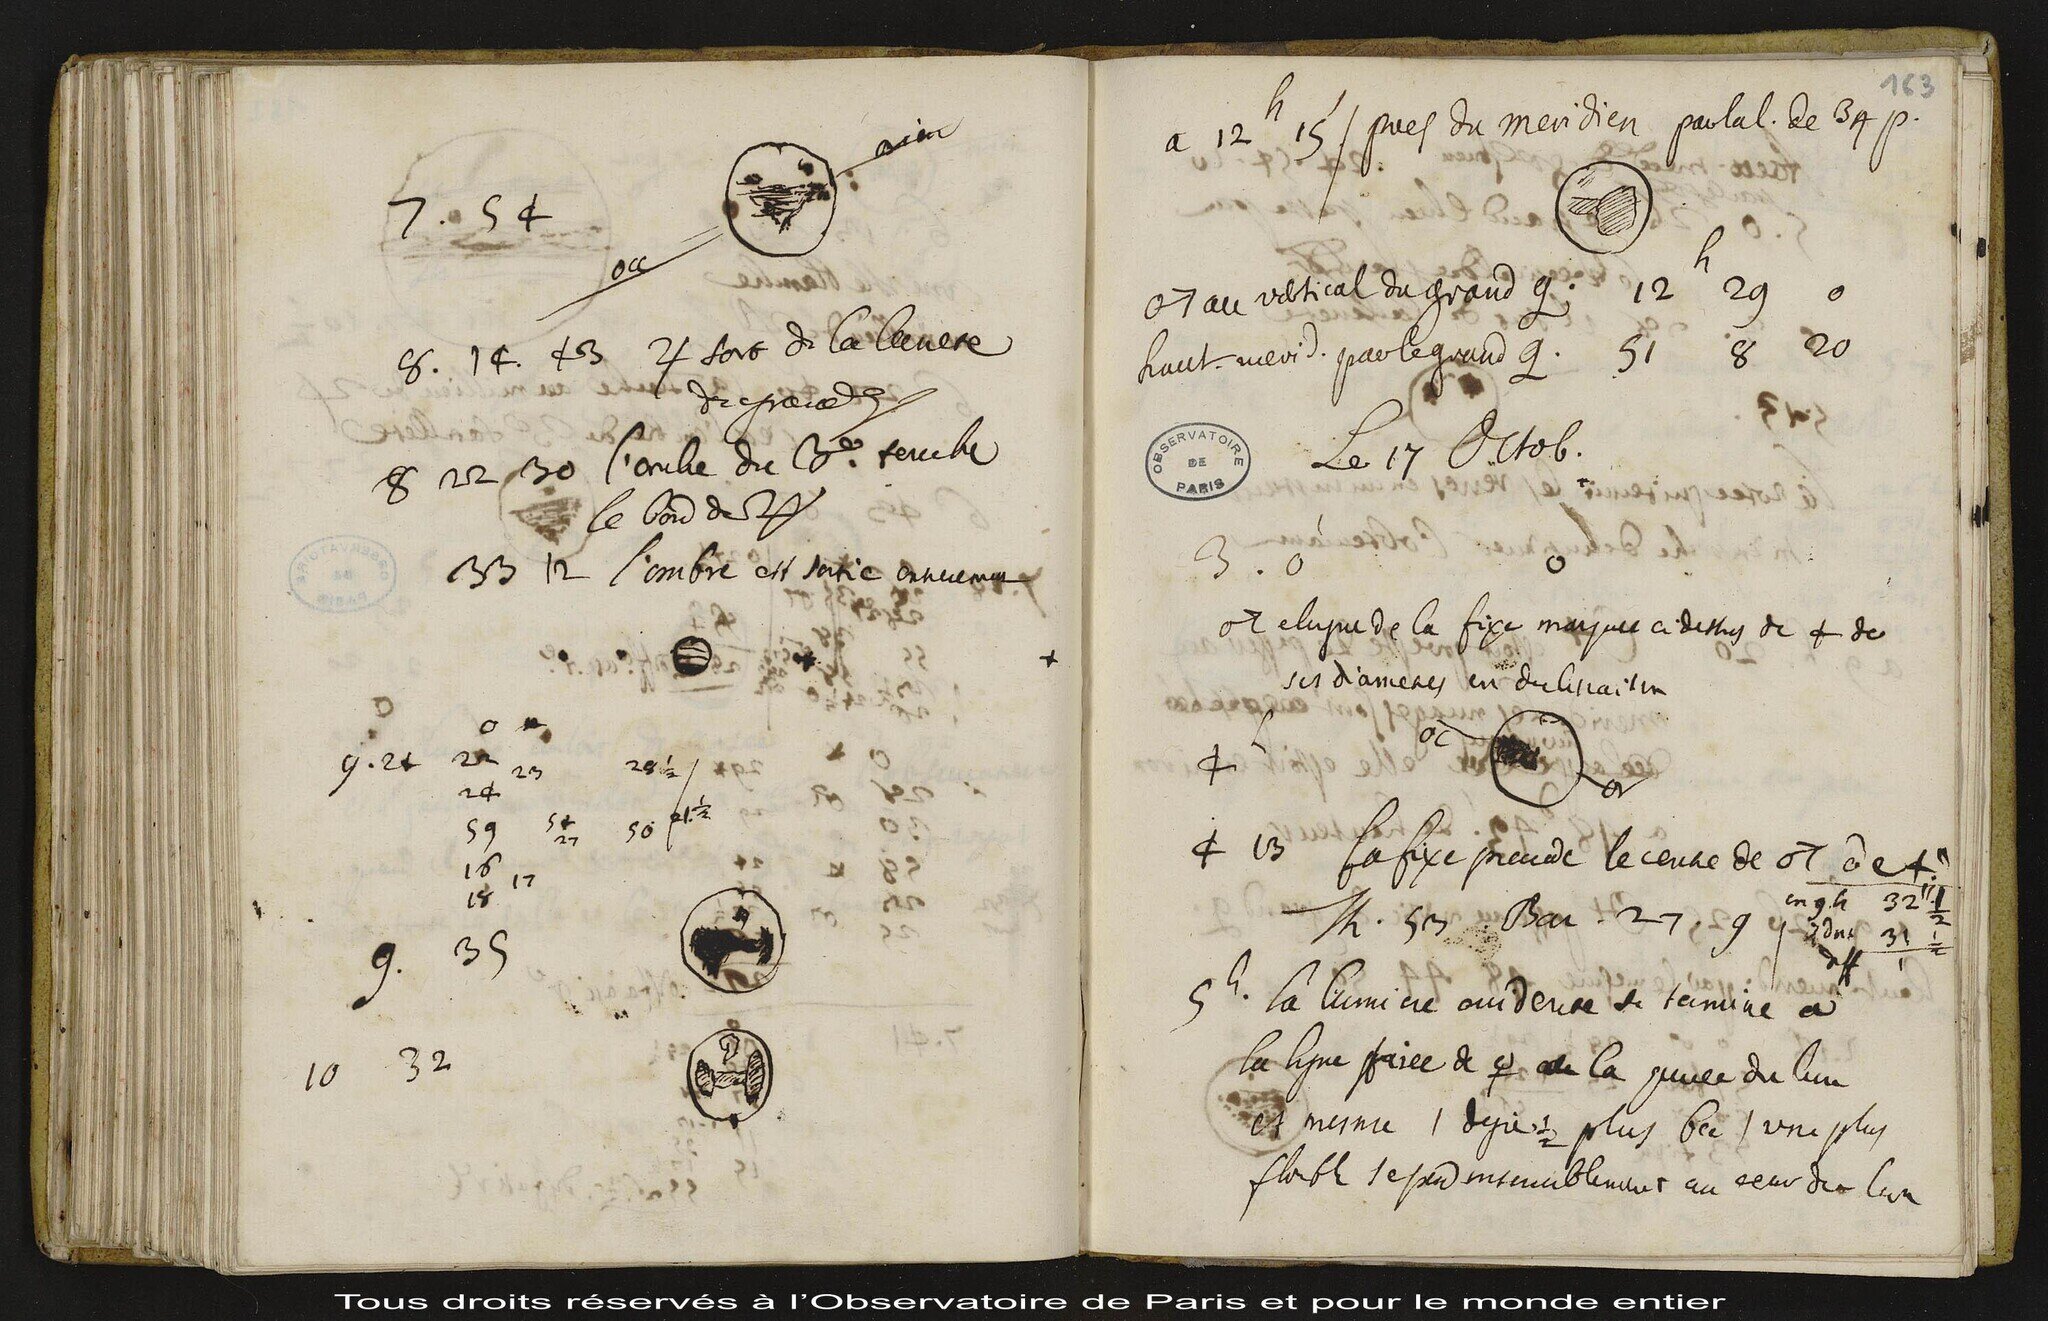 7. 54
orien
occ
8. 14. 43 ♃ sort de la lunete
du grand
8 22 30 l'ombre du 3e. touche
le bord de ♃
33 12 l'ombre est sortie
9. 24 22 23 28 ½
24
59 54 50 21 ½
27
16
17
18
9. 35
10 32
163
a 12 h 15' pres du meridien par la l. de 34 p.
♂ au vertical du grand q. 12 h 29 0
haut. merid. par le grand q. 51 8 20
OBSERVATOIRE DE PARIS
Le 17 Octob.
3. 0
♂ eloigné de la fixe marquee ci dessus de 4 de
ses diametres en declinaison
4 h
oc
or
4 13 la fixe precede le centre de ♂ de 4"
Th. 53. Bar. 27. 9
32 ½
31 ½
diff 1
5 h. la lumiere se termine a
la ligne tirée de ♀ a la du lion
et mesme 1 degré ½ plus bas / une plus
foible se insensiblement au coeur du lion
Tous droits réservés à l'Observatoire de Paris et pour le monde entier